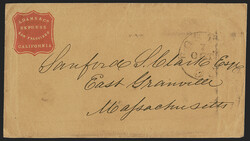 EXPRESS
SAN FRANCISCO
CALIFORNIA
Sanford S. Clark Esq
East Granville
Massachusetts